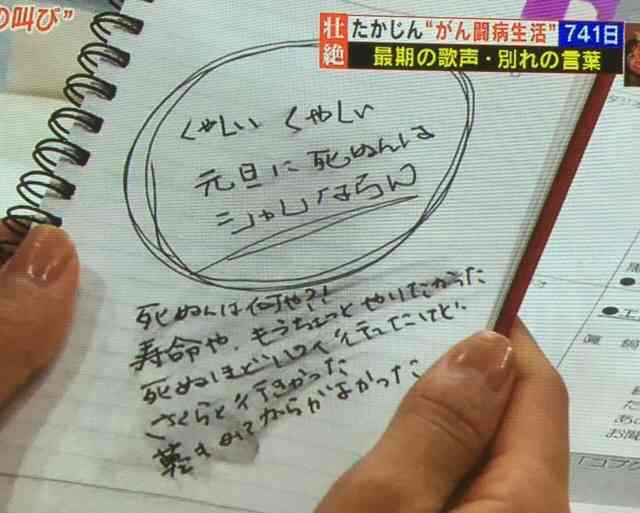 の叫び”
壮絶
たかじん“がん闘病生活”741日
最期の歌声・別れの言葉
くやしい くやしい
元旦に死ぬんは
シャレにならん
死ぬんは何や?!
寿命や、もうちょっとやりたかった
死ぬほどハワイ行ったけど
さくらと行きかった
落ちついてからがよかった
お聞